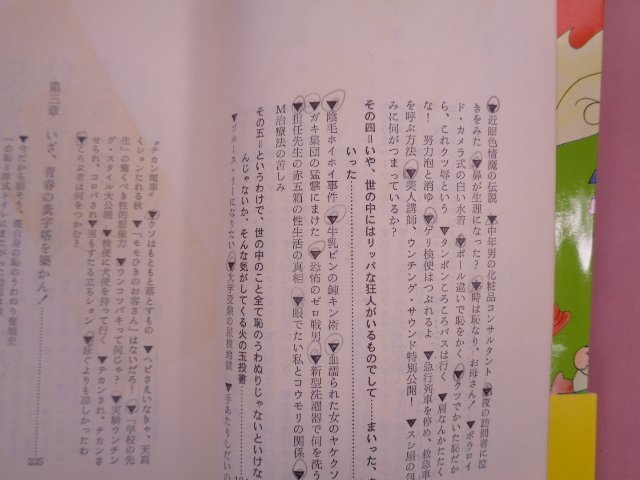 ▼近眼色情魔の伝説 ▼中年男の化粧品コンサルタント ▼夜の訪問者に泣
きをみた ▼鼻が生理になった? ▼時は恥なり、お母さん! ▼ポラロイ
ド・カメラ式の白い水着 ▼ボール違いで恥をかく ▼クツでかいた恥だか
ら、これクツ辱という ▼タンポンころころバスは行く ▼肩なんかたたく
な! 努力泡と消ゆ ▼ゲリ検便はつぶれるよ ▼急行列車を停め、救急車
を呼ぶ方法 ▼美人講師、ウンチング・サウンド特別公開! ▼スシ屋の
みに何がつまっているか?
その四=いや、世の中にはリッパな狂人がいるものでして……まいった、
いった
▼陰毛ホイホイ事件 ▼牛乳ビンの錬キン術 ▼血濡られた女のヤケクソ
▼ガキ集団の猛撃にまけた ▼恐怖のゼロ戦男 ▼新型洗濯器で何を洗う
▼担任先生の赤五箱の性生活の真相 ▼眼でたい私とコウモリの関係
M治療法の苦しみ
その五=というわけで、世の中のこと全て恥のうわぬりじゃないといけな
んじゃないか、そんな気がしてくる尖の玉投書
▼ブルース・リーになりたい ▼大学受験の尿検地獄 ▼手あたりしだいの
チカン電車 ▼クソはもともと落とすもの ▼ヘビさえいなきゃ、天高
くションたれる秋 ▼「モモひきのお客さん」はないだろ! ▼「学校の先
生」の驚くべき性的想像力 ▼ウンコツバキって何じゃ? ▼実験ウンチン
グ・スタイル大公開 ▼検便に犬便を持って行く ▼チカンされ、チカンさ
せられ、コロバされ ▼男もすなる立ちション ▼泳ぐよりも涼しかったわ
▼ころぶ者は何をつかむ?
第三章 いざ、青春の糞字塔を築かん!……235
▼今だから話そう、僕自身の恥のうわぬり奮戦史